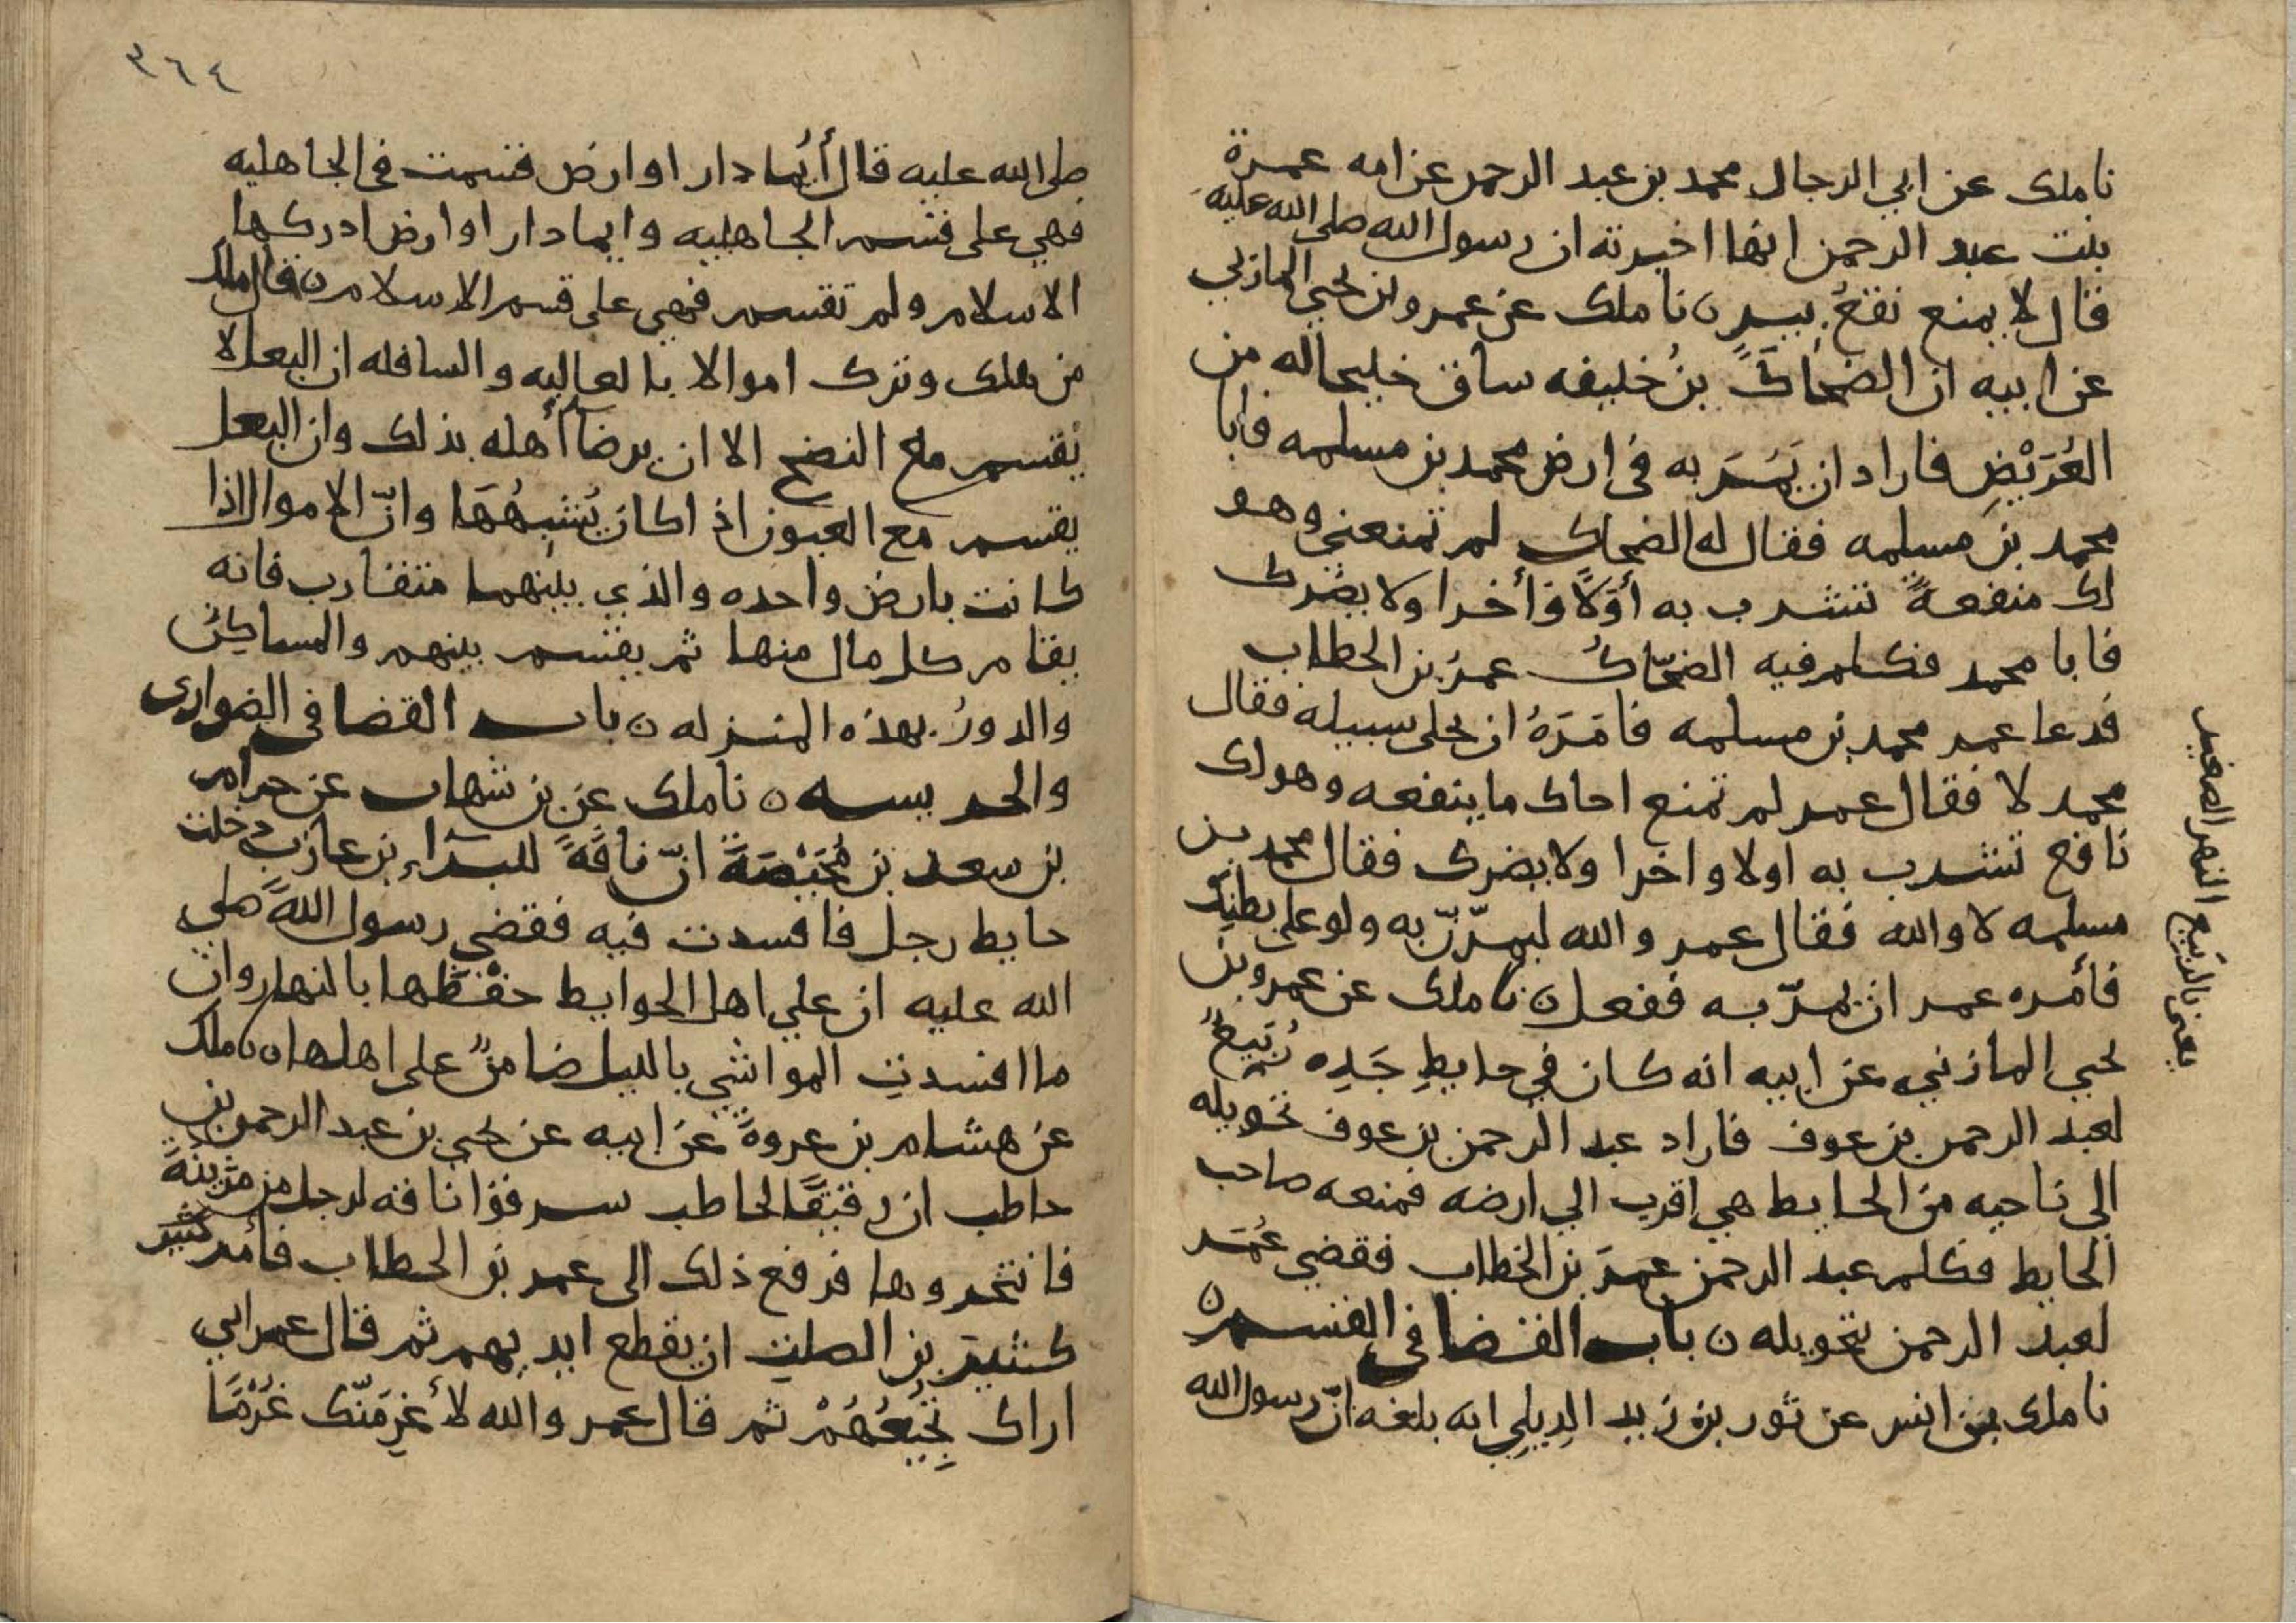 نا ملك عن ابي الرجال محمد بن عبد الرحمن عن امه عمرة
بنت عبد الرحمن انها اخبرته ان رسول الله صلى الله عليه
قال لا يمنع نقع بير ن نا ملك عن عمرو بن يحيى المازني
عن ابيه ان الضحاك بن خليفه ساق خليجا له من
العُرَيْضِ فاراد ان يَمُرَ به في ارض محمد بن مسلمه فابا
محمد بن مسلمه فقال له الضحاك لم تمنعني وهو
لك منفعةً تشرب به أوّلاً وأخرا ولا يضرك
فابا محمد فكلم فيه الضحّاكُ عمرَ بن الخطاب
فدعا عمر محمد بن مسلمه فامَرَهُ ان يخلي سبيله فقال
محمد لا فقال عمر لم تمنع اخاك ما ينفعه وهو لك
نافع تشرب به اولا واخرا ولا يضرك فقال محمد بن
مسلمه لا والله فقال عمر والله ليمرّنّ به ولو على بطنِك
فأمره عمر ان يمرّ به ففعل ن نا ملك عن عمرو بن
يحيى المازني عن ابيه انه كان في حايطِ جَدِه رُبَيعٌ
لعبد الرحمن بن عوف فاراد عبد الرحمن بن عوف تحويله
الى ناحيه من الحايط هي اقرب الي ارضه فمنعه صاحب
الحايط فكلم عبد الرحمن عمرَ بن الخطاب فقضى عُمَر
لعبد الرحمن بتحويله ن باب القضا في القسم ن
نا ملك بن انس عن ثور بن زيد الدِيلِي انه بلغه انّ رسول الله
يعني بالربيع النهر الصغير
٣٦٤
صلى الله عليه قال أيُما دار او ارض قسمت في الجاهليه
فهي على قسم الجاهليه وايما دار او ارض ادركها
الاسلام ولم تقسم فهي على قسم الاسلام ن قال ملك
من هلك وترك اموالا بالعاليه والسافله ان البعل لا
يقسم مع النضح الا ان يرضا أهله بذلك وان البعل
يقسم مع العيون اذا كان يُشبِهُهَا وانّ الاموال اذا
كانت بارض واحده والذي بينهما متقارب فانه
يقام كل مال منها ثم يقسم بينهم والمساكِنُ
والدورُ بهذه المنزله ن باب القضا في الضوارى
والحريسه ن نا ملك عن بن شهاب عن حرام
بن سعد بن مُحَيْصَةَ انّ ناقةً للبرآء بن عازب دخلت
حايط رجل فافسدت فيه فقضى رسول الله صلى
الله عليه ان علي اهل الحوايط حفْظَها بالنهار وان
ما افسدتِ المواشي بالليل ضامنٌ على اهلها ن نا ملك
عن هشام بن عروةَ عن ابيه عن يحيى بن عبد الرحمن بن
حاطب ان رقيقًا لحاطب سرقوا ناقه لرجل من مُزَينَةَ
فانتحروها فرفع ذلك الى عمر بن الخطاب فأمر كثير
كثير بن الصلت ان يقطع ايديهم ثم قال عمر اني
اراك تُجِيعُهُمْ ثم قال عمر والله لأغرِمَنّك غُرْمًا